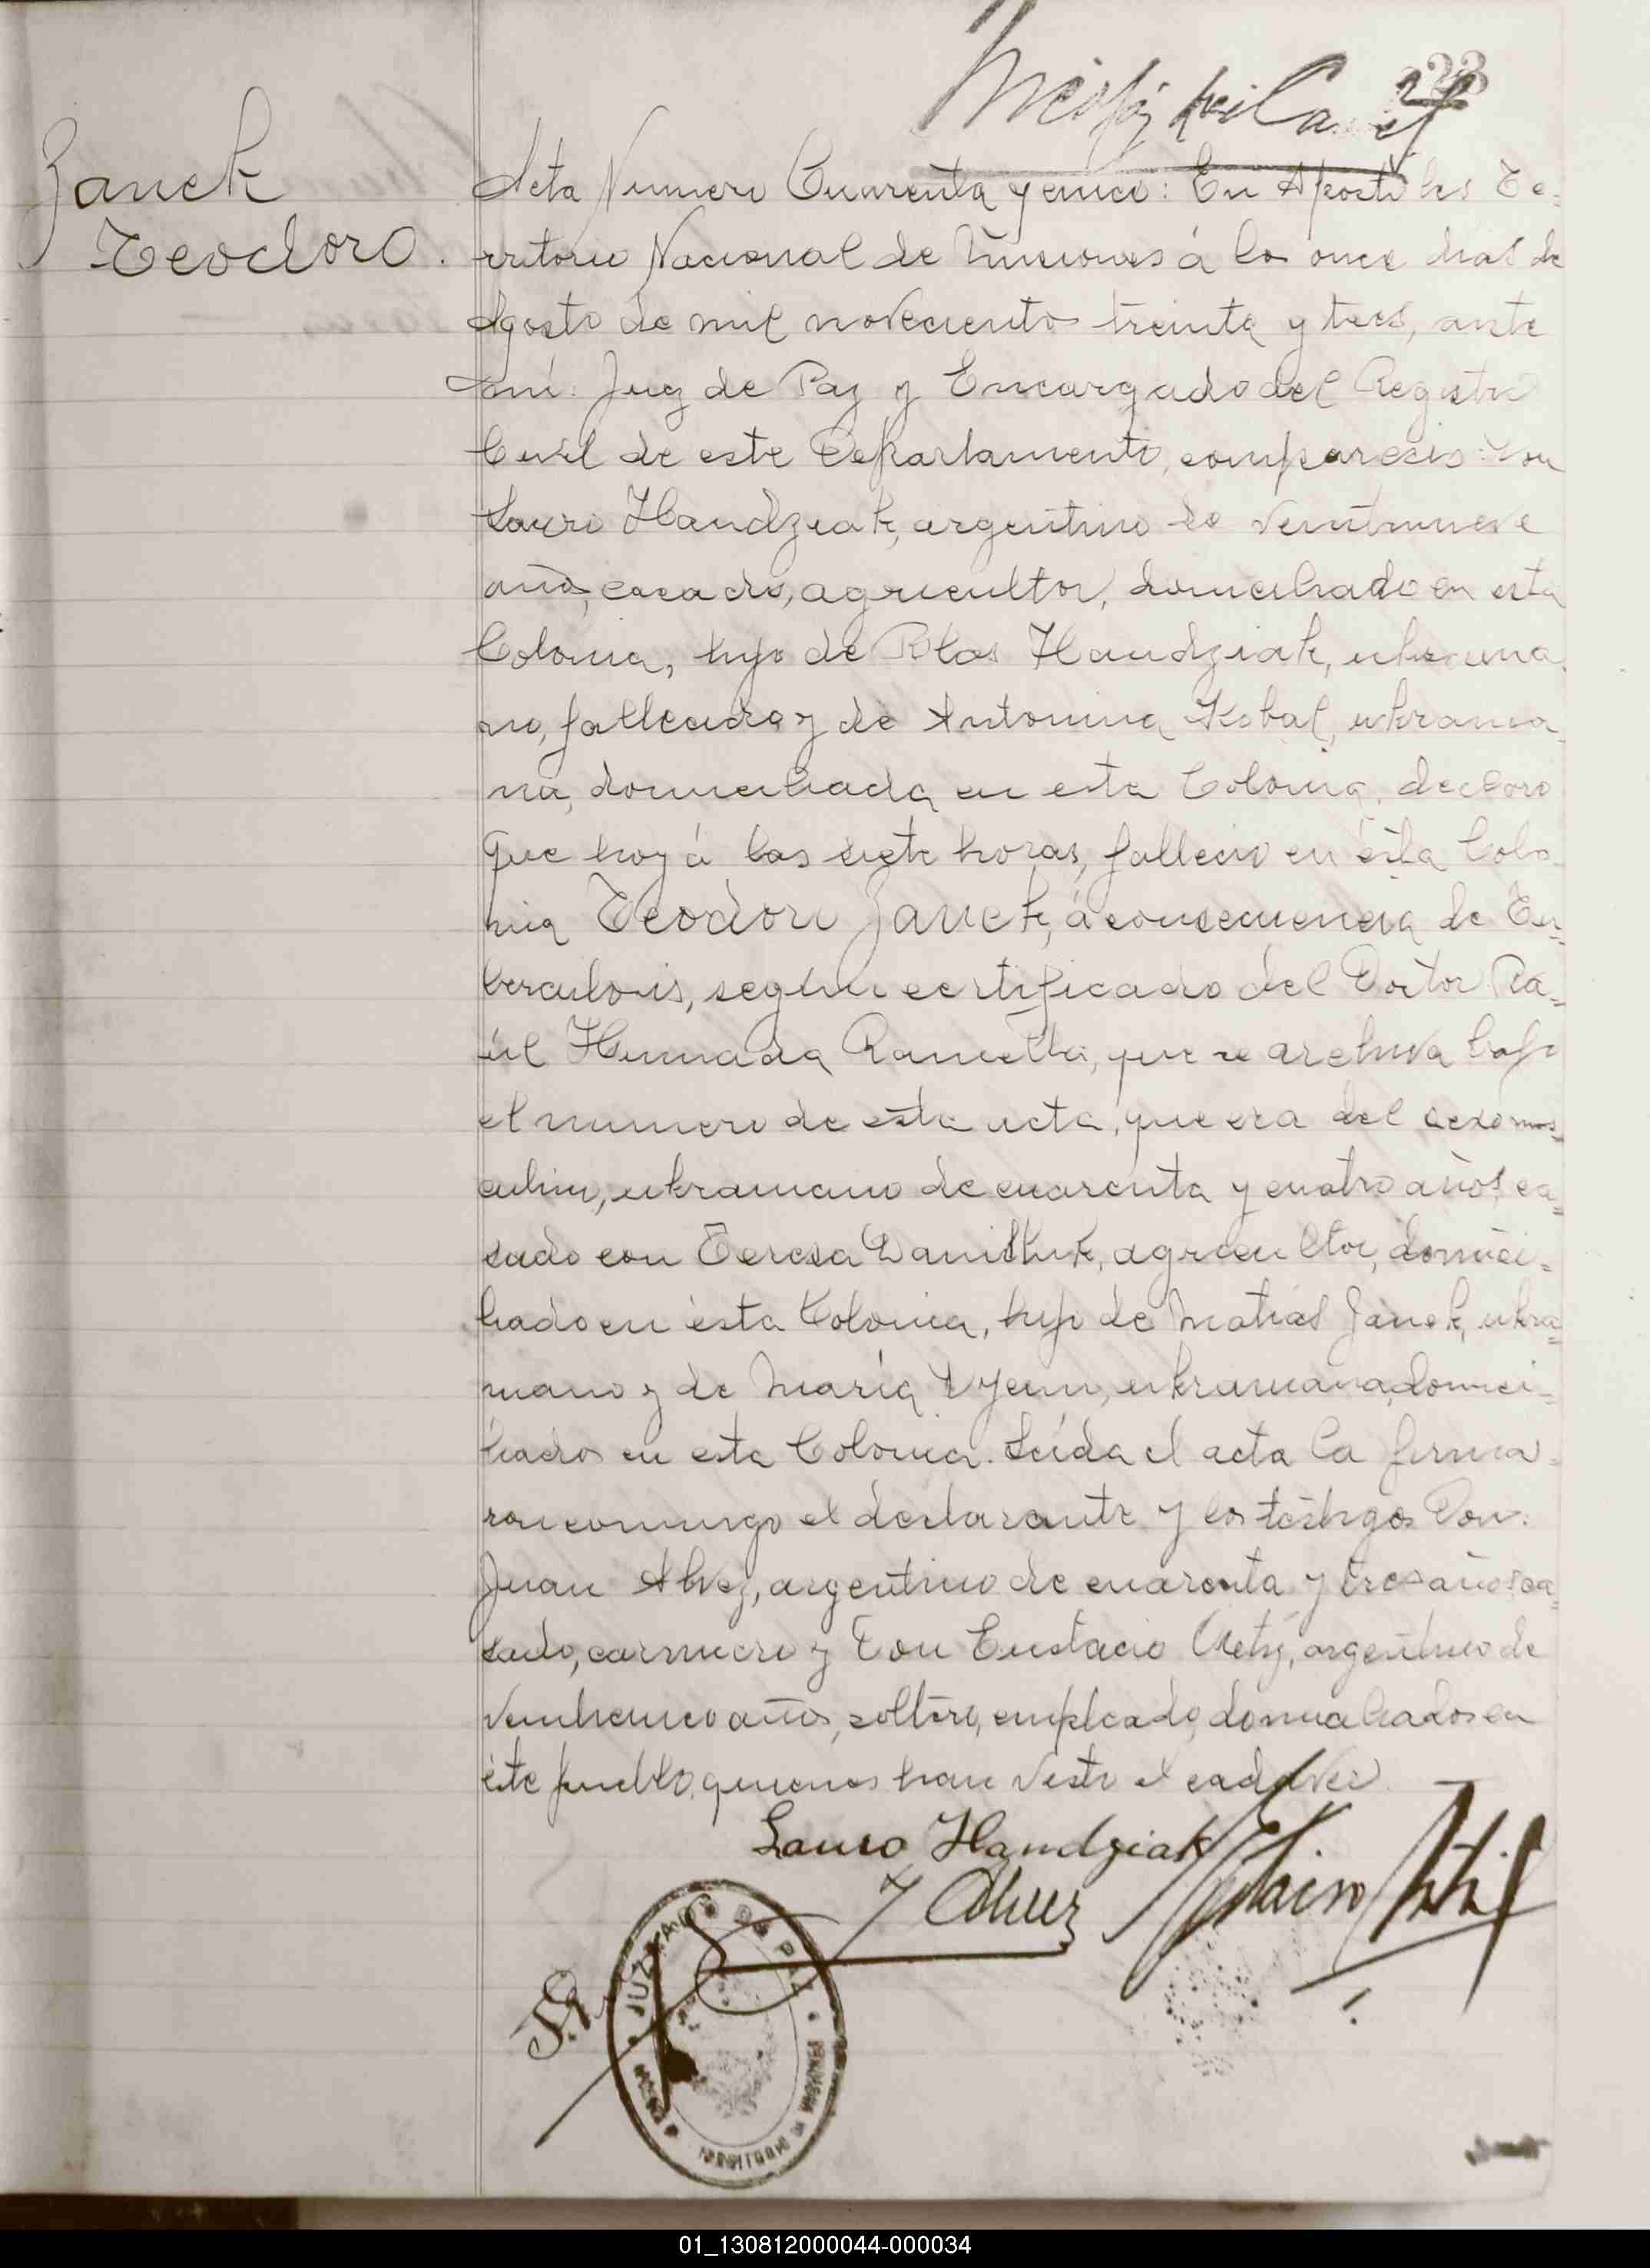 233
Janek
Teodoro.
Acta Numero Cuarenta y cinco: En Apostoles Te-
rritorio Nacional de Misiones á los once dias de
Agosto de mil novecientos treinta y tres, ante
mi: Juez de Paz y Encargado del Registro
Civil de este Departamento, comparecio: Don
Lauro Handziak, argentino de veintinueve
años, casado, agricultor, domiciliado en esta
Colonia, hijo de Blas Handziak, ukrania
no, fallecido y de Antonina Kobal, ukrania
na, domiciliada en esta Colonia, declaro
Que hoy á las siete horas, fallecio en ésta Colo
nia Teodoro Janek, á consecuencia de Tu=
berculosis, según certificado del Doctor Ra=
úl Humada Ramella, que se archiva bajo
el numero de esta acta, que era del sexo mas=
culino, ukraniano de cuarenta y cuatro años, ca=
sado con Teresa Daniluk, agricultor, domici=
liado en ésta Colonia, hijo de Matias Janek, ukra=
niano y de María, ukraniana, domici=
liados en esta Colonia. Leída el acta la firma=
ron conmigo el declarante y los testigos Don:
Juan Alvez, argentino de cuarenta y tres años, ca=
sado, carnicero y Don Eustacio, argentino de
veinticinco años, soltero, empleado, domiciliados en
éste pueblo, quienes han visto el cadaver.
Lauro Handziak
J Alvez
JUZGADO DE PAZ
TERRITORIO DE MISIONES
01_130812000044-000034